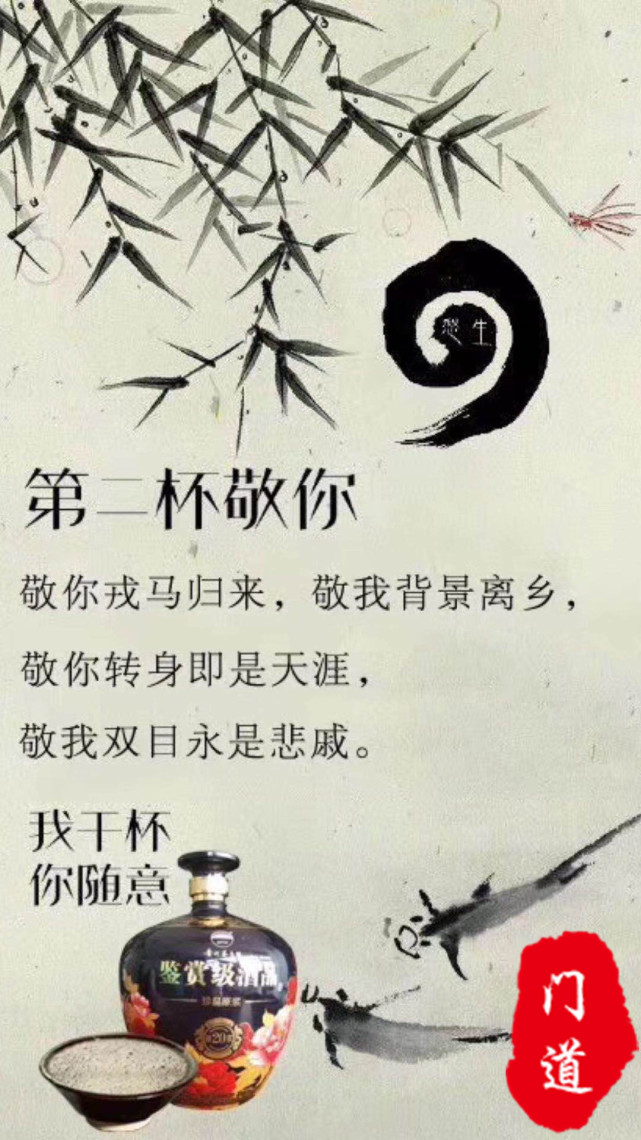 悠生
第二杯敬你
敬你戎马归来，敬我背景离乡，
敬你转身即是天涯，
敬我双目永是悲戚。
我干杯
你随意
鉴赏级酒品
珍品原浆
20
门道